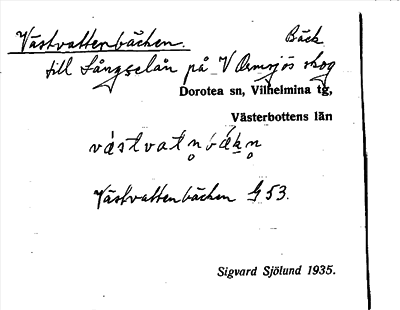 Västvattenbäcken. Bäck
till Långselån på V Ormsjös skog
Dorotea sn, Vilhelmina tg,
Västerbottens län
västvatn̥bäkn̥
Västvattenbäcken G 53.
Sigvard Sjölund 1935.